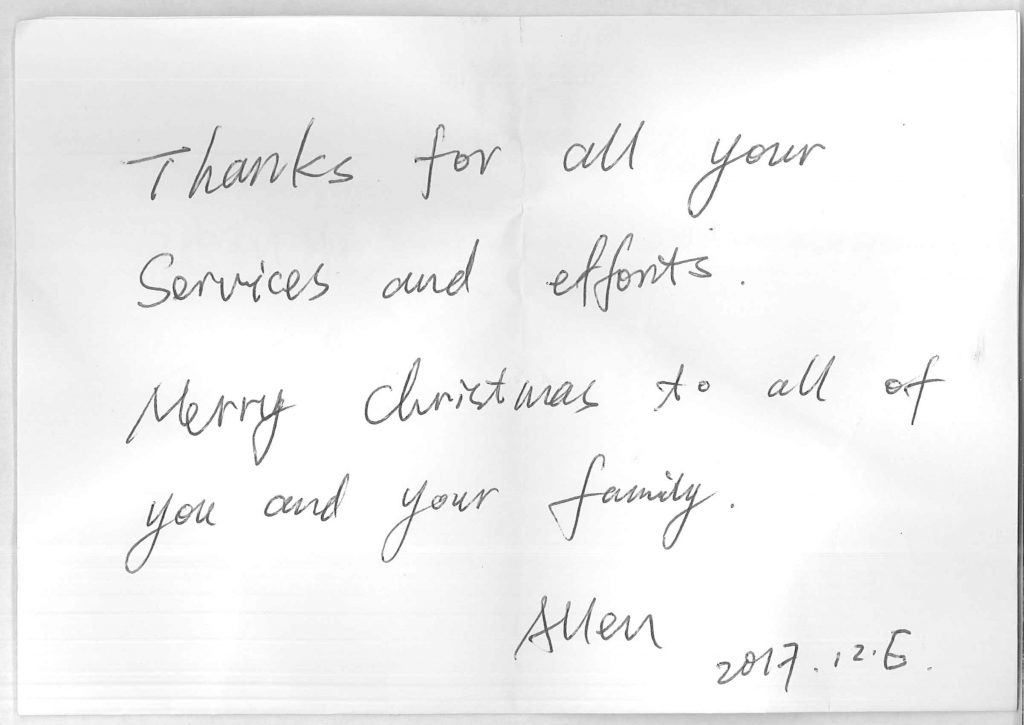 Thanks for all your
Services and efforts.
Merry Christmas to all of
you and your family.
Allen
2017.12.